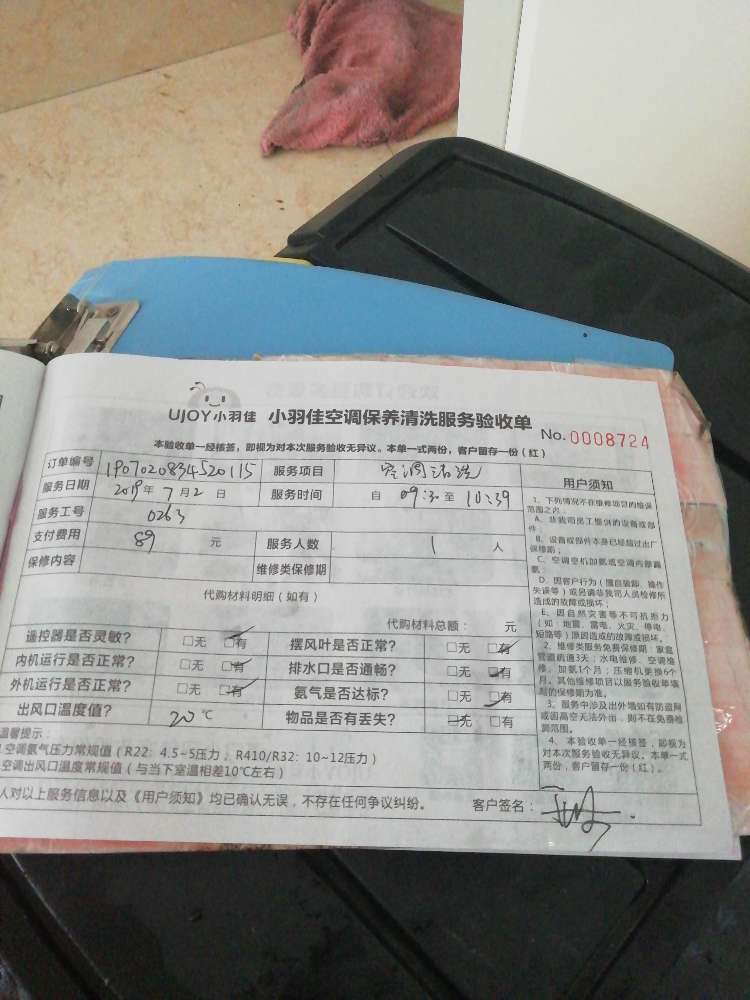 UJOY小羽佳 小羽佳空调保养清洗服务验收单
No. 0008724
本验收单一经核签，即视为对本次服务验收无异议。本单一式两份，客户留存一份（红）
订单编号 1907020834520115 服务项目 空调清洗
服务日期 2019年 7月 2 日 服务时间 自 09:30 至 10:39
服务工号 0263
支付费用 89 元 服务人数 1 人
保修内容 维修类保修期
代购材料明细（如有）
代购材料总额： 元
遥控器是否灵敏？ □无 □有 摆风叶是否正常？ □无 □有
内机运行是否正常？ □无 □有 排水口是否通畅？ □无 □有
外机运行是否正常？ □无 □有 氨气是否达标？ □无 □有
出风口温度值？ 20 ℃ 物品是否有丢失？ □无 □有
温馨提示：
空调氨气压力常规值（R22：4.5~5压力，R410/R32：10~12压力）
空调出风口温度常规值（与当下室温相差10℃左右）
人对以上服务信息以及《用户须知》均已确认无误，不存在任何争议纠纷。 客户签名：
用户须知
1、下列情况不在维修项目的维保
范围之内
A、非我司员工提供的设备或部
件；
B、设备或部件本身已经超出厂
保修期；
C、空调空机加氨或空调内部漏
氨；
D、因客户行为（擅自装卸、操作
失误等）或另请非我司人员检修所
造成的故障或损坏；
E、因自然灾害等不可抗拒力
（如：地震、雷电、火灾、停电、
短路等）原因造成的故障或损坏。
2、维修类服务免费保修期：家庭
管道疏通3天；水电维修、空调维
修、加氨1个月；压缩机更换6个
月。其他维修项目以服务验收单填
写的保修期为准。
3、服务中涉及出外墙如有防盗网
或因高空无法外出，则不在免费检
测范围。
4、本验收单一经核签，即视为
对本次服务验收无异议。本单一式
两份，客户留存一份（红）。